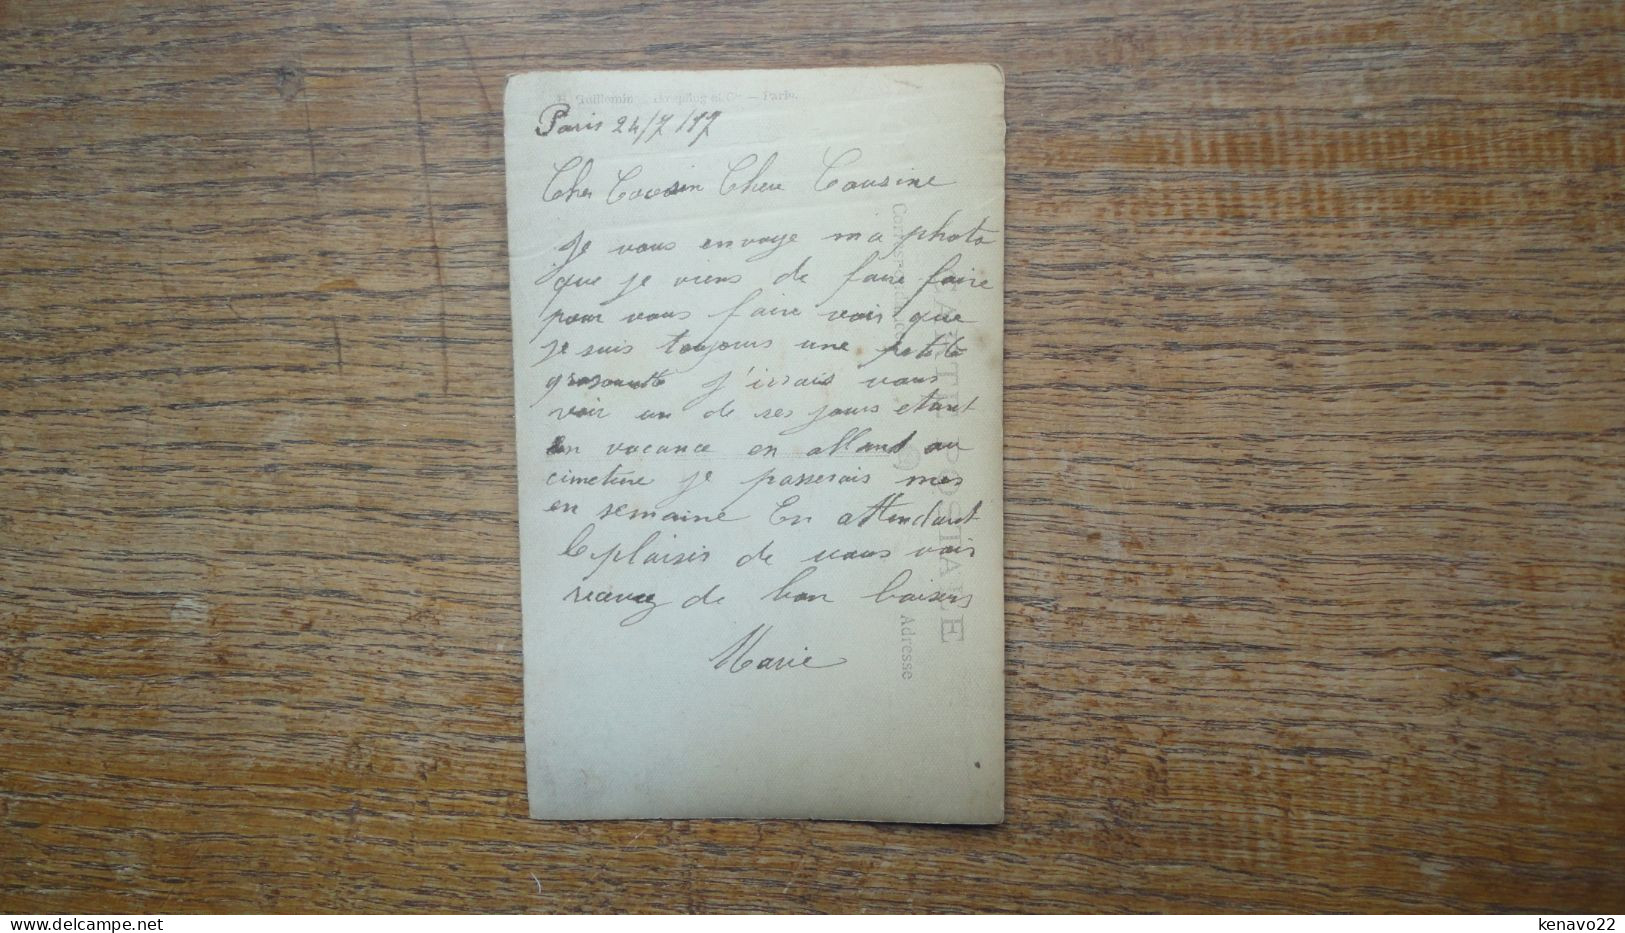 Guilleminot Boespflug et Cie — Paris.
Paris 24/7/17
Cher Cousin Chere Cousine
Je vous envoye ma photo
que je viens de faire faire
pour vous faire voir que
je suis toujours une petite
j'irrais vous
voir un de ses jours etant
en vacance en allant au
cimetiere je passerais mes
en semaine En attendant
le plaisir de vous voir
recevez de bon baisers
Marie
CARTE POSTALE
Correspondance
Adresse
kenavo22